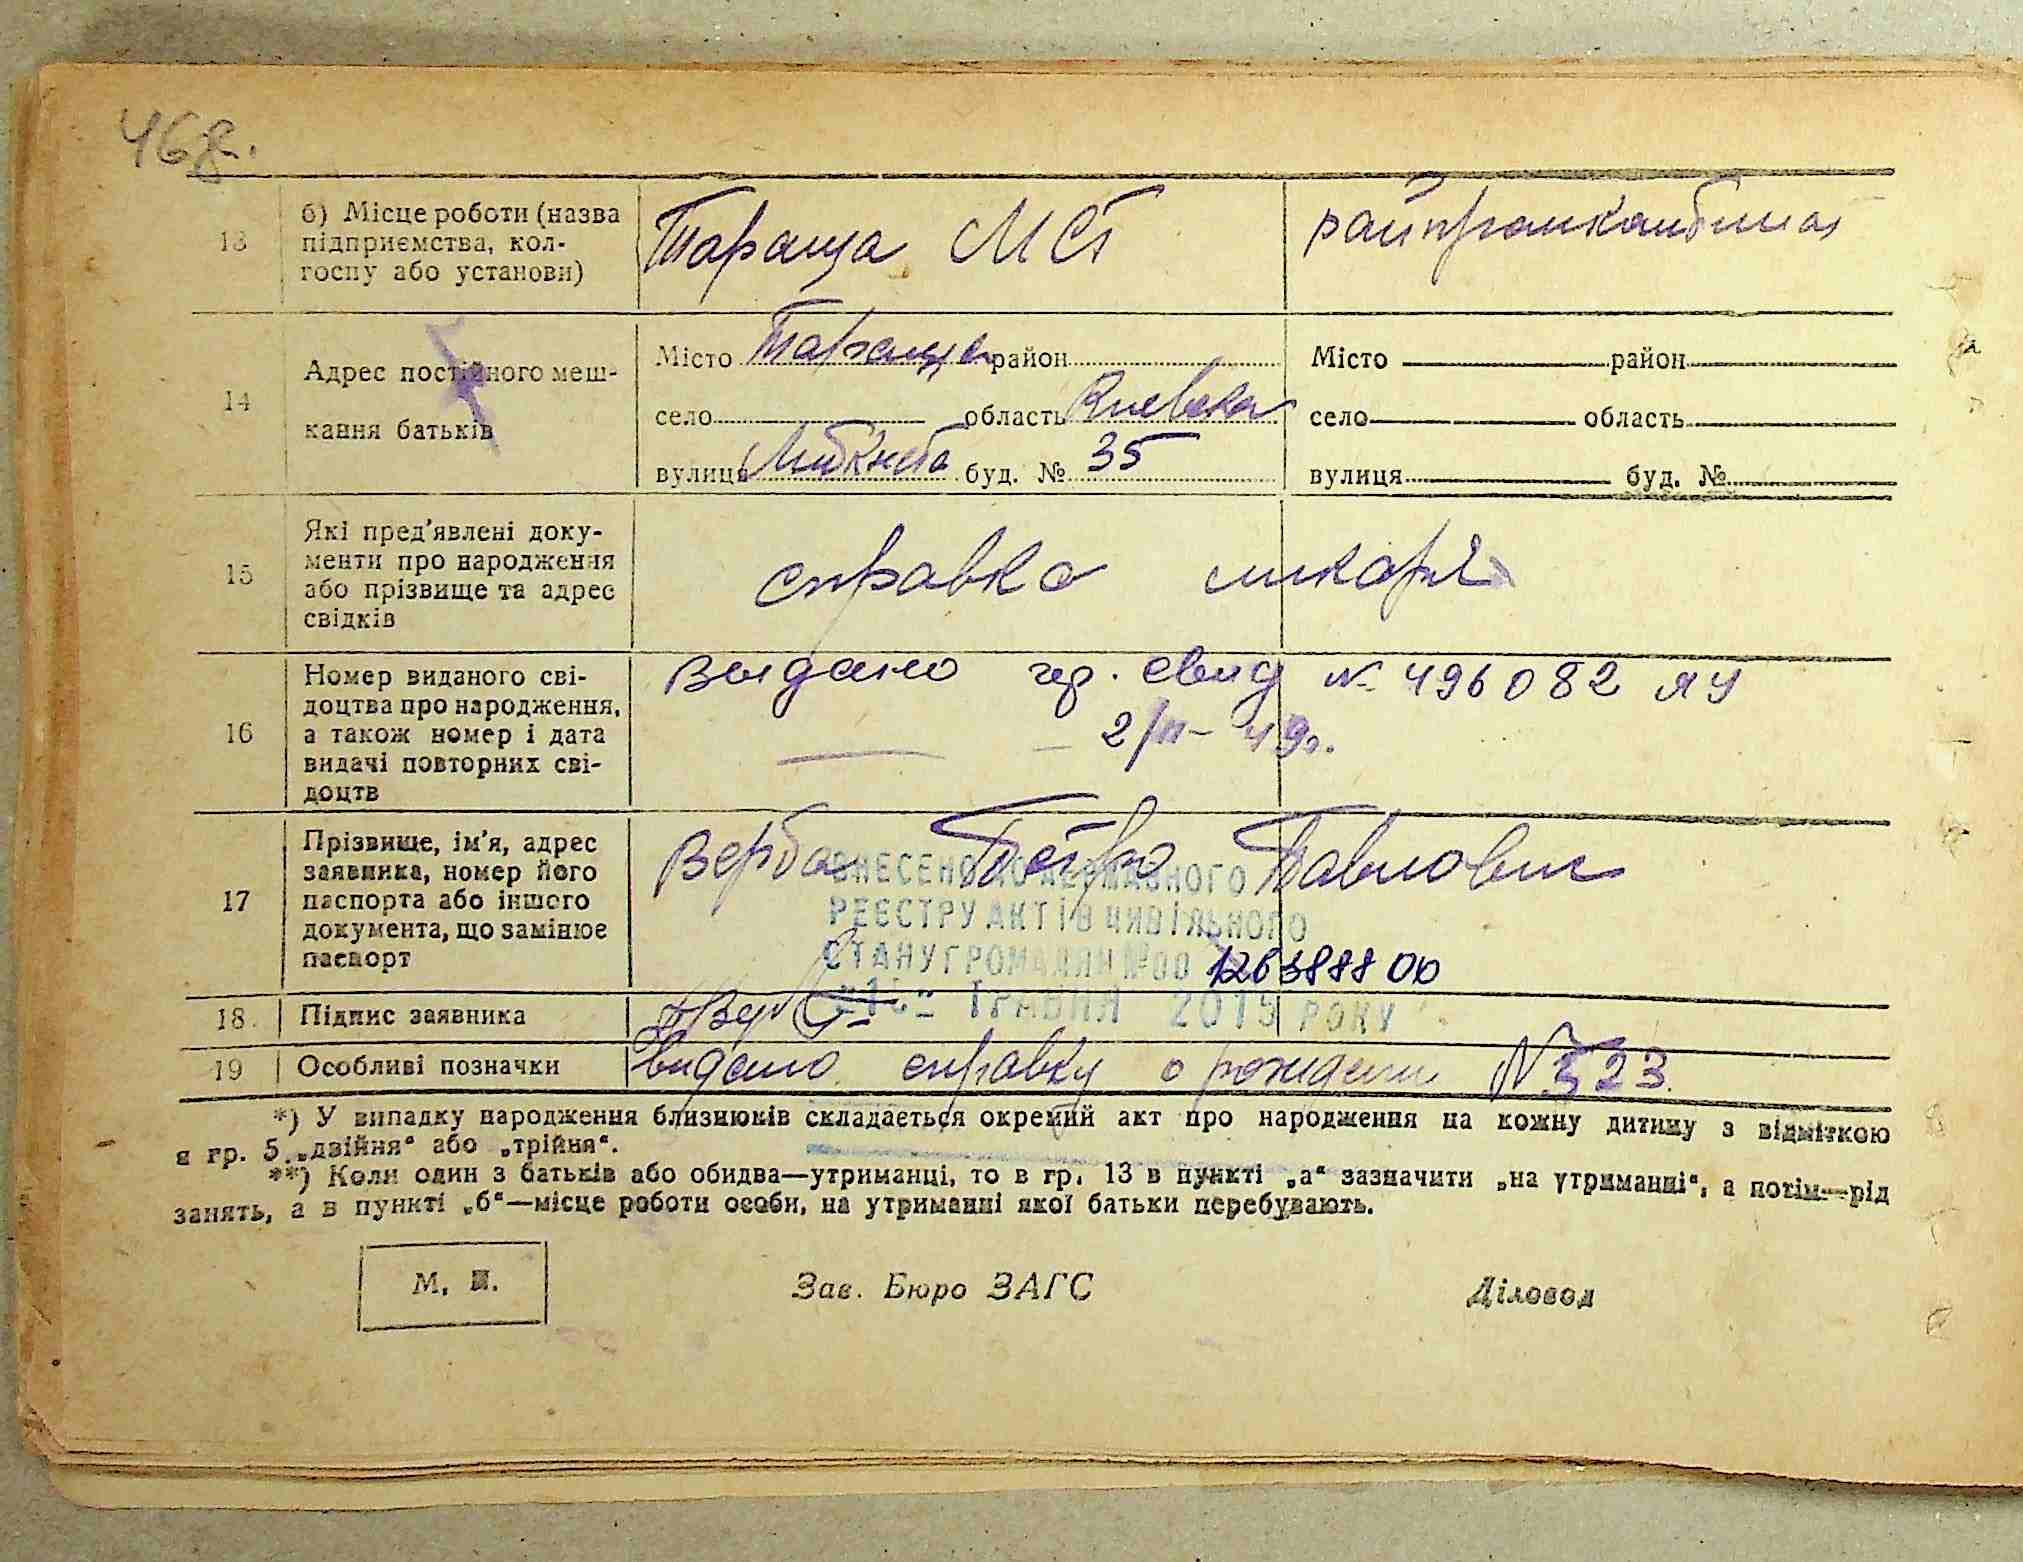 13 б) Місце роботи (назва
підприємства, кол-
госпу або установи)
Тараща
райпромкомбинат
14 Адрес постійного меш-
кання батьків
Місто Тараща район
село область Киевска
вулиця Либкнехта буд. № 35
Місто район
село область
вулиця буд. №
15 Які пред'явлені доку-
менти про народження
або прізвище та адрес
свідків
справка
16 Номер виданого сві-
доцтва про народження,
а також номер і дата
видачі повторних сві-
доцтв
Выдано свид № 496082 ЯУ
49г.
17 Прізвище, ім'я, адрес
заявника, номер його
паспорта або іншого
документа, що замінює
паспорт
Верба Петро Павлович
ВНЕСЕНО ДО ДЕРЖАВНОГО
РЕЄСТРУ АКТІВ ЦИВІЛЬНОГО
СТАНУ ГРОМАДЯН №00
ТРАВНЯ 2015 РОКУ
18. Підпис заявника
19 Особливі позначки
видано справку о рождении
*) У випадку народження близнюків складається окремий акт про народження на кожну дитину з відміткою
в гр. 5 „двійня“ або „трійня“.
**) Коли один з батьків або обидва—утриманці, то в гр. 13 в пункті „а“ зазначити „на утриманні“, а потім—рід
занять, а в пункті „б“—місце роботи особи, на утриманні якої батьки перебувають.
М. П.
Зав. Бюро ЗАГС
Діловод